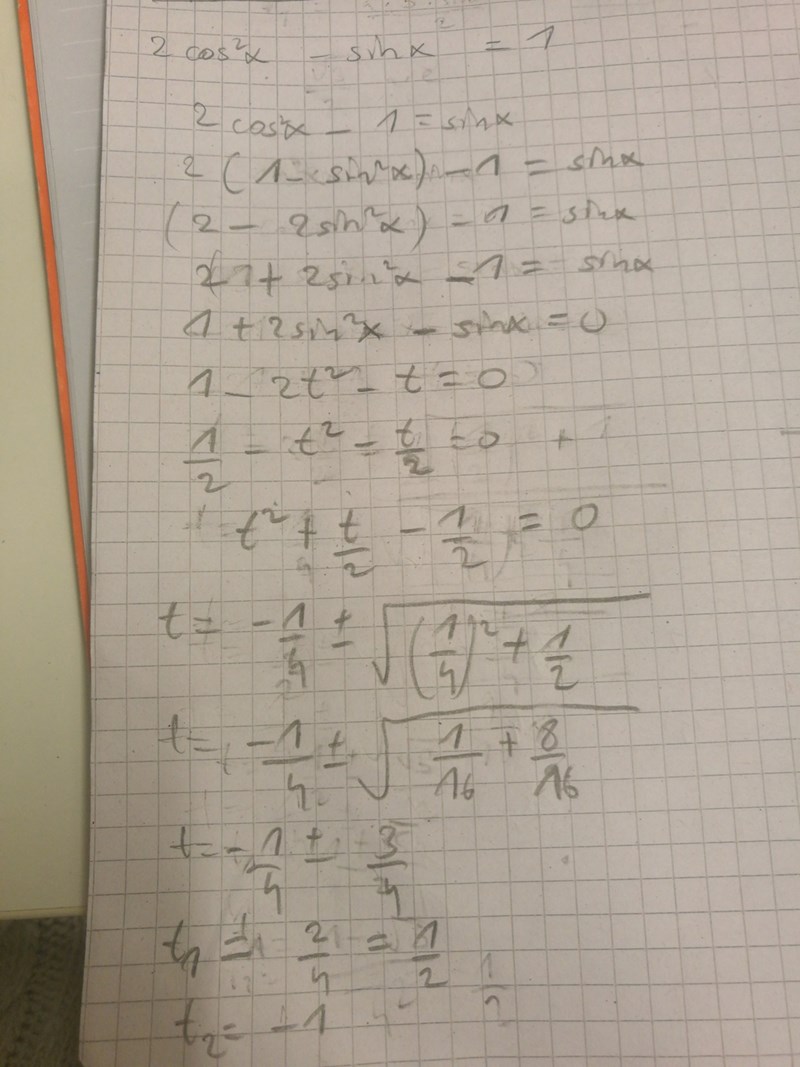 2 cos²x - sinx = 1
2 cos²x - 1 = sinx
2 (1 - sin²x) - 1 = sinx
(2 - 2sin²x) - 1 = sinx
1 + 2sin²x - 1 = sinx
1 + 2sin²x - sinx = 0
1 - 2t² - t = 0
1/2 - t² - t/2 = 0 +
t² + t/2 - 1/2 = 0
t = -1/4 ± √((1/4)² + 1/2)
t = -1/4 ± √(1/16 + 8/16)
t = -1/4 ± 3/4
t₁ = 2/4 = 1/2
t₂ = -1